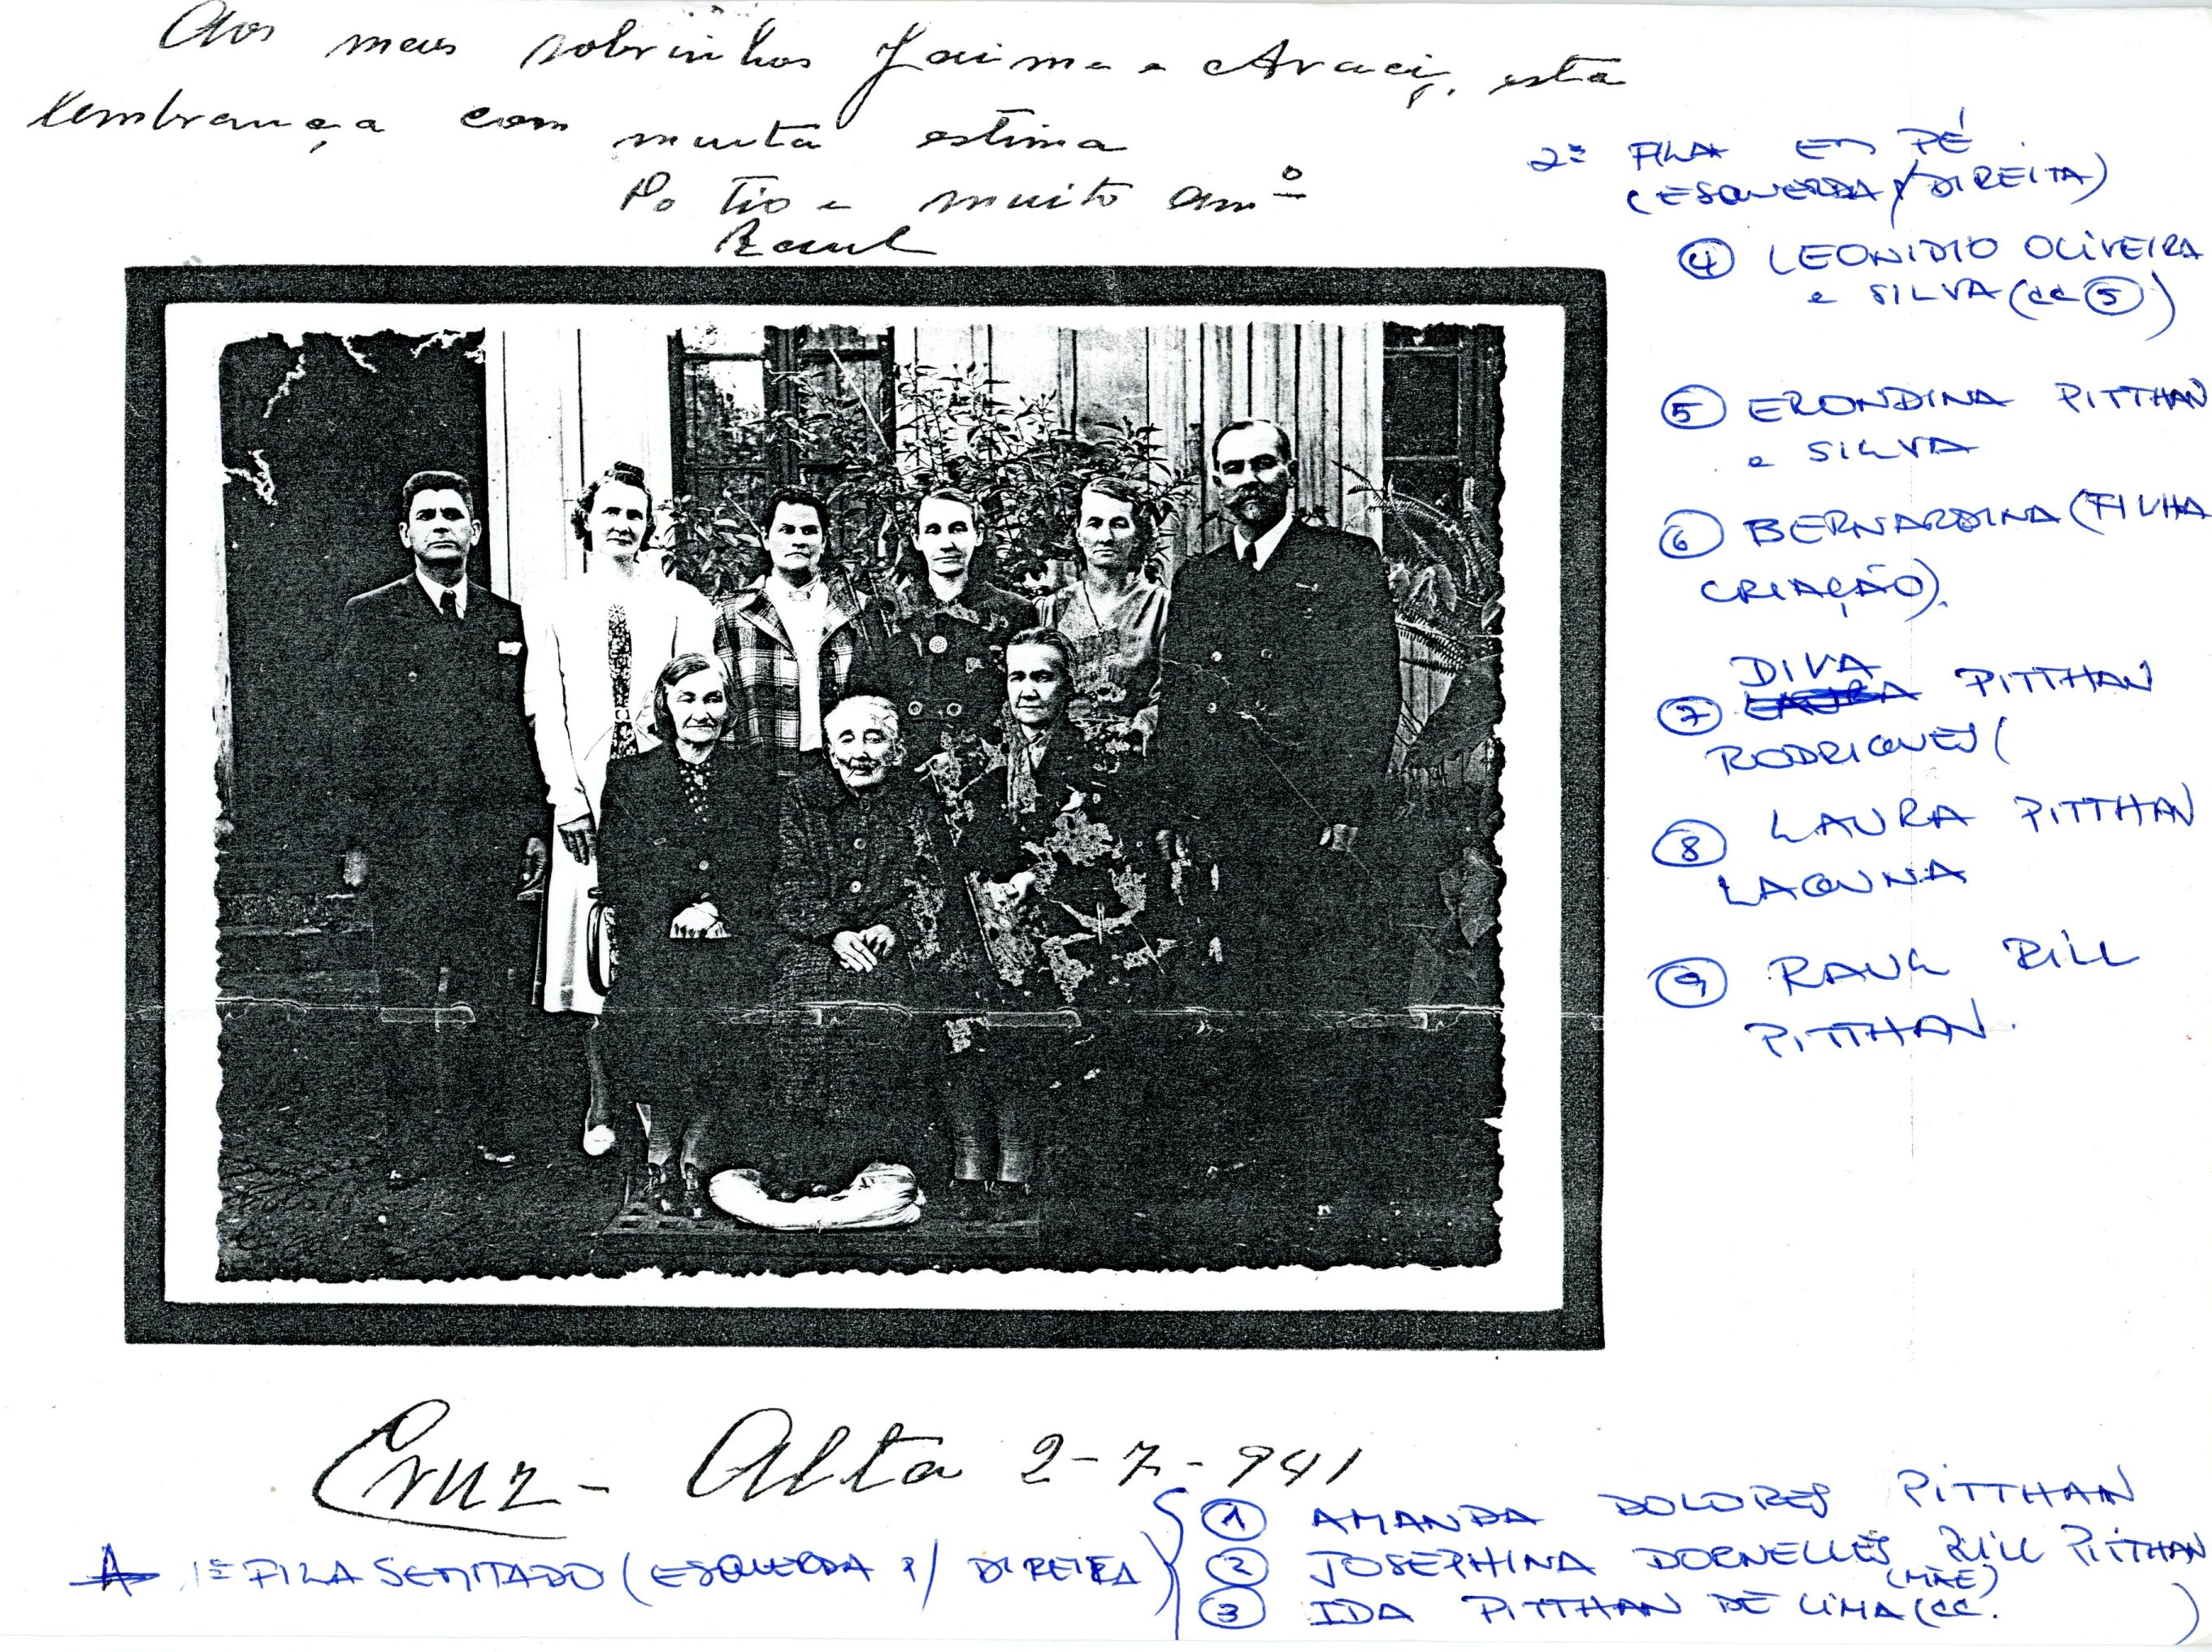 Aos meus sobrinhos Jaime e Araci, esta
lembrança com muita estima
Do Tio e muito amº
Raul
2ª FILA EM PÉ
(ESQUERDA P/ DIREITA)
④ LEONIDIO OLIVEIRA
e SILVA (cc ⑤)
⑤ ERONDINA PITTHAN
e SILVA
⑥ BERNARDINA (FILHA
CRIAÇÃO).
DIVA
⑦ PITTHAN
RODRIGUES (
⑧ LAURA PITTHAN
LAGUNA
⑨ RAUL RILL
PITTHAN.
Cruz-Alta 2-7-941
1ª FILA SENTADO (ESQUERDA P/ DIREITA)
① AMANDA DOLORES PITTHAN
② JOSEPHINA DORNELLES RILL PITTHAN
(MÃE)
③ IDA PITTHAN DE LIMA (cc. )